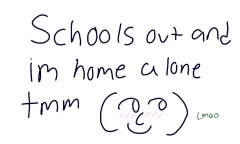 Schools out and
im home alone
tmm
Lmao